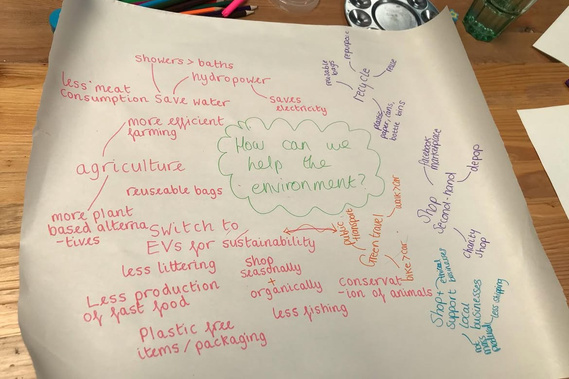 showers > baths
hydropower
less meat
consumption
save water
saves
electricity
more efficient
farming
agriculture
reuseable bags
more plant
based alterna
-tives
How can we
help the
environment?
Switch to
EVs for sustainability
less littering
Less production
of fast food
Plastic free
items/packaging
Shop
seasonally
+
organically
less fishing
conservat
-ion of animals
public
transport
Green travel
walk > car
bike > car
reusable
bags
repurpose
recycle
plastic,
paper, cans,
bottle bins
facebook
marketplace
depop
Shop
second-hand
charity
shop
Shop +
support
local
businesses
ethical
businesses
less shipping